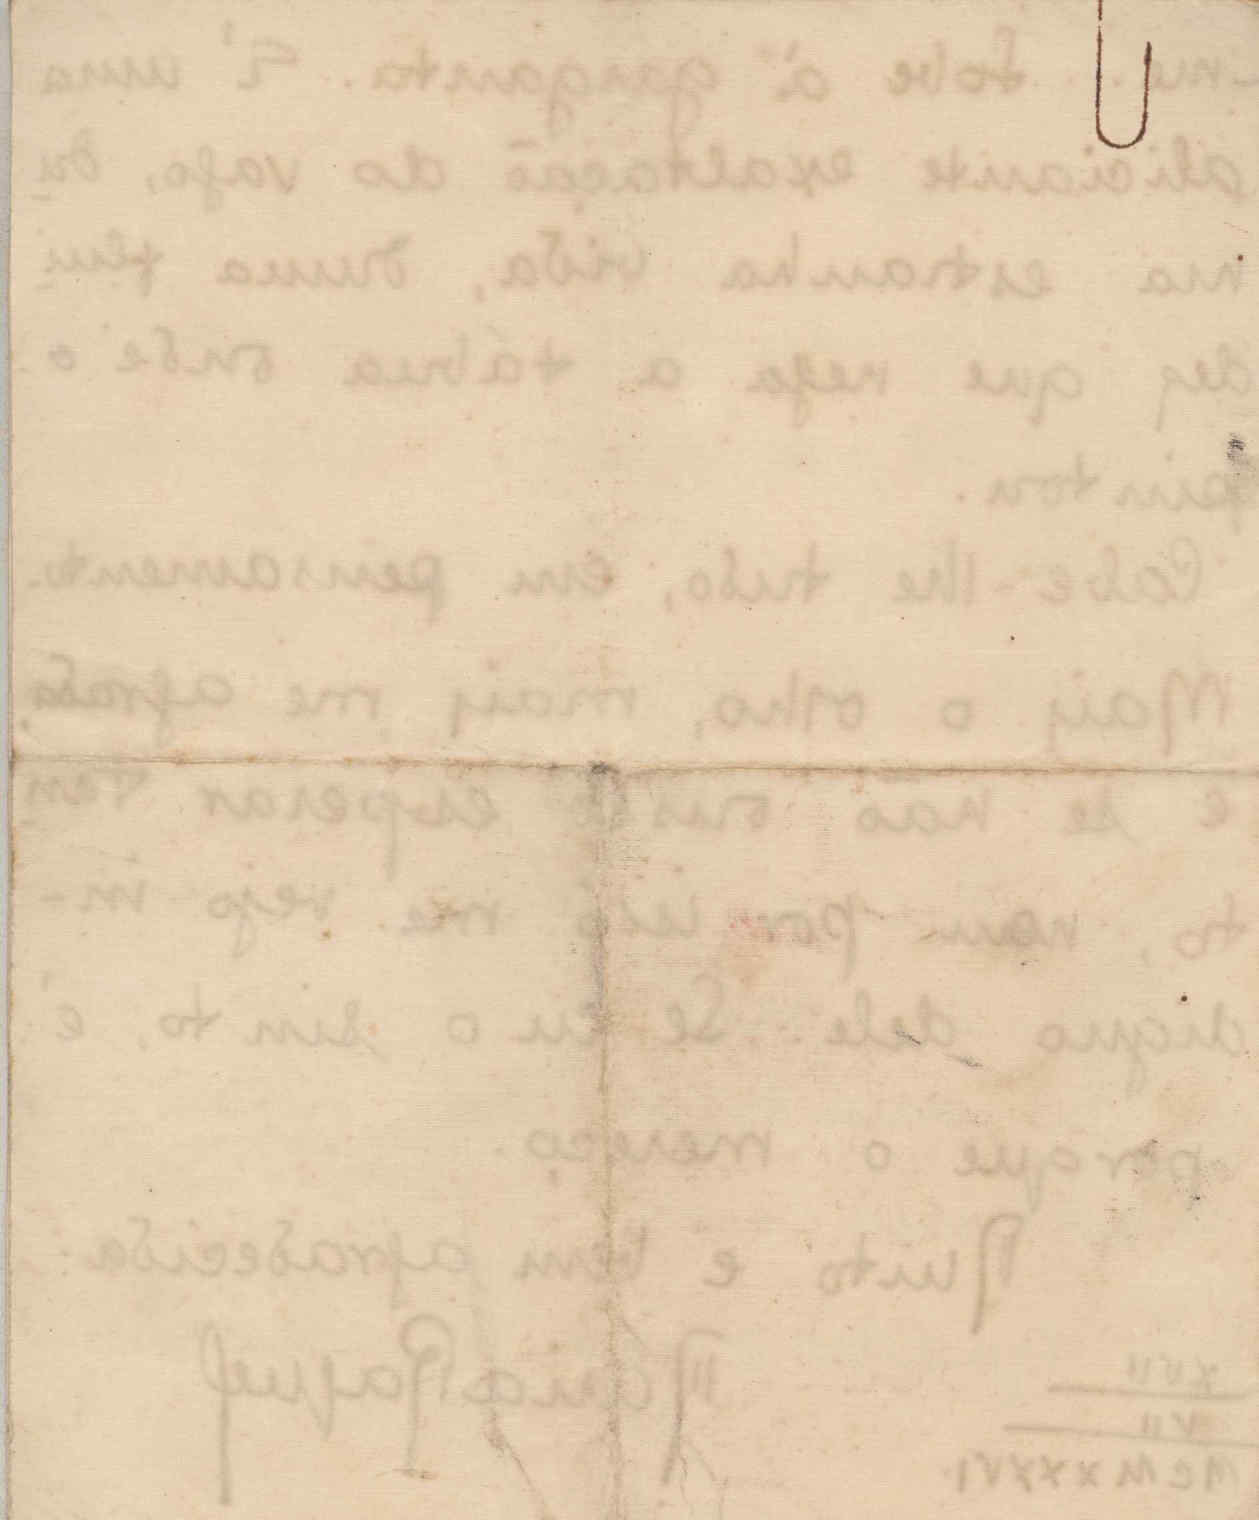 me... sobe à garganta. É uma
aliciante exaltação do vago, du
ma estranha vida, duma
que nega a tábua onde o
pintou.
Cabe-lhe tudo, em pensamento.
Mais o olho, mais me agrada,
e se não ousei esperar tan
to, nem por isso me vejo in-
digno dele. Se eu o sinto, é
porque o mereço.
Muito e bem agradecida
Maria Raquel
XVII
VII
MCMXXXVI